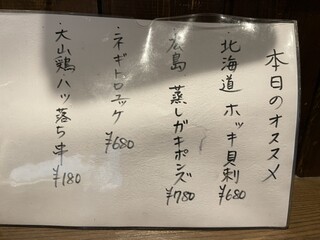 本日のオススメ
・北海道 ホッキ貝刺 ¥680
・広島 蒸しガキポンズ ¥780
・ネギトロユッケ ¥680
・大山鶏ハツ落ち串 ¥180